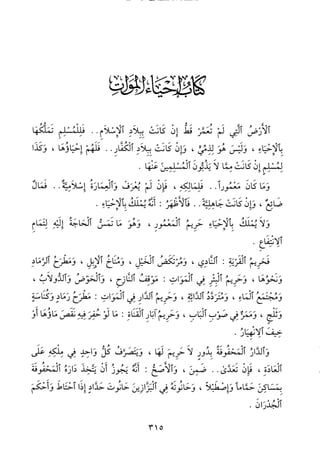 كتاب إحياء الموات
الأَرْضُ الَّتِي لَمْ تُعْمَرْ قَطُّ إِنْ كَانَتْ بِبِلَادِ الإِسْلَامِ.. فَلِلْمُسْلِمِ تَمَلُّكُهَا
بِالإِحْيَاءِ ، وَلَيْسَ هُوَ لِذِمِّيٍّ ، وَإِنْ كَانَتْ بِبِلَادِ الْكُفَّارِ.. فَلَهُمْ إِحْيَاؤُهَا ، وَكَذَا
لِمُسْلِمٍ إِنْ كَانَتْ مِمَّا لَا يَذُبُّونَ الْمُسْلِمِينَ عَنْهَا .
وَمَا كَانَ مَعْمُوراً.. فَلِمَالِكِهِ ، فَإِنْ لَمْ يُعْرَفْ وَالْعِمَارَةُ إِسْلَامِيَّةٌ.. فَمَالٌ
ضَائِعٌ ، وَإِنْ كَانَتْ جَاهِلِيَّةً.. فَالأَظْهَرُ : أَنَّهُ يُمْلَكُ بِالإِحْيَاءِ .
وَلَا يُمْلَكُ بِالإِحْيَاءِ حَرِيمُ الْمَعْمُورِ ، وَهُوَ مَا تَمَسُّ الْحَاجَةُ إِلَيْهِ لِتَمَامِ
الِانْتِفَاعِ .
فَحَرِيمُ الْقَرْيَةِ : النَّادِي ، وَمُرْتَكَضُ الْخَيْلِ ، وَمُنَاخُ الإِبِلِ ، وَمَطْرَحُ الرَّمَادِ
وَنَحْوُهَا ، وَحَرِيمُ الْبِئْرِ فِي الْمَوَاتِ : مَوْقِفُ النَّازِحِ ، وَالْحَوْضُ وَالدُّولَابُ ،
وَمُجْتَمَعُ الْمَاءِ ، وَمُتَرَدَّدُ الدَّابَّةِ ، وَحَرِيمُ الدَّارِ فِي الْمَوَاتِ : مَطْرَحُ رَمَادٍ وَكُنَاسَةٍ
وَثَلْجٍ ، وَمَمَرٌّ فِي صَوْبِ الْبَابِ ، وَحَرِيمُ آبَارِ الْقَنَاةِ : مَا لَوْ حُفِرَ فِيهِ نَقَصَ مَاؤُهَا أَوْ
خِيفَ الِانْهِيَارُ .
وَالدَّارُ الْمَحْفُوفَةُ بِدُورٍ لَا حَرِيمَ لَهَا ، وَيَتَصَرَّفُ كُلُّ وَاحِدٍ فِي مِلْكِهِ عَلَى
الْعَادَةِ ، فَإِنْ تَعَدَّى.. ضَمِنَ ، وَالأَصَحُّ : أَنَّهُ يَجُوزُ أَنْ يَتَّخِذَ دَارَهُ الْمَحْفُوفَةَ
بِمَسَاكِنَ حَمَّاماً وَإِصْطَبْلاً ، وَحَانُوتَهُ فِي الْبَزَّازِينَ حَانُوتَ حَدَّادٍ إِذَا احْتَاطَ وَأَحْكَمَ
الْجُدْرَانَ .
٣١٥